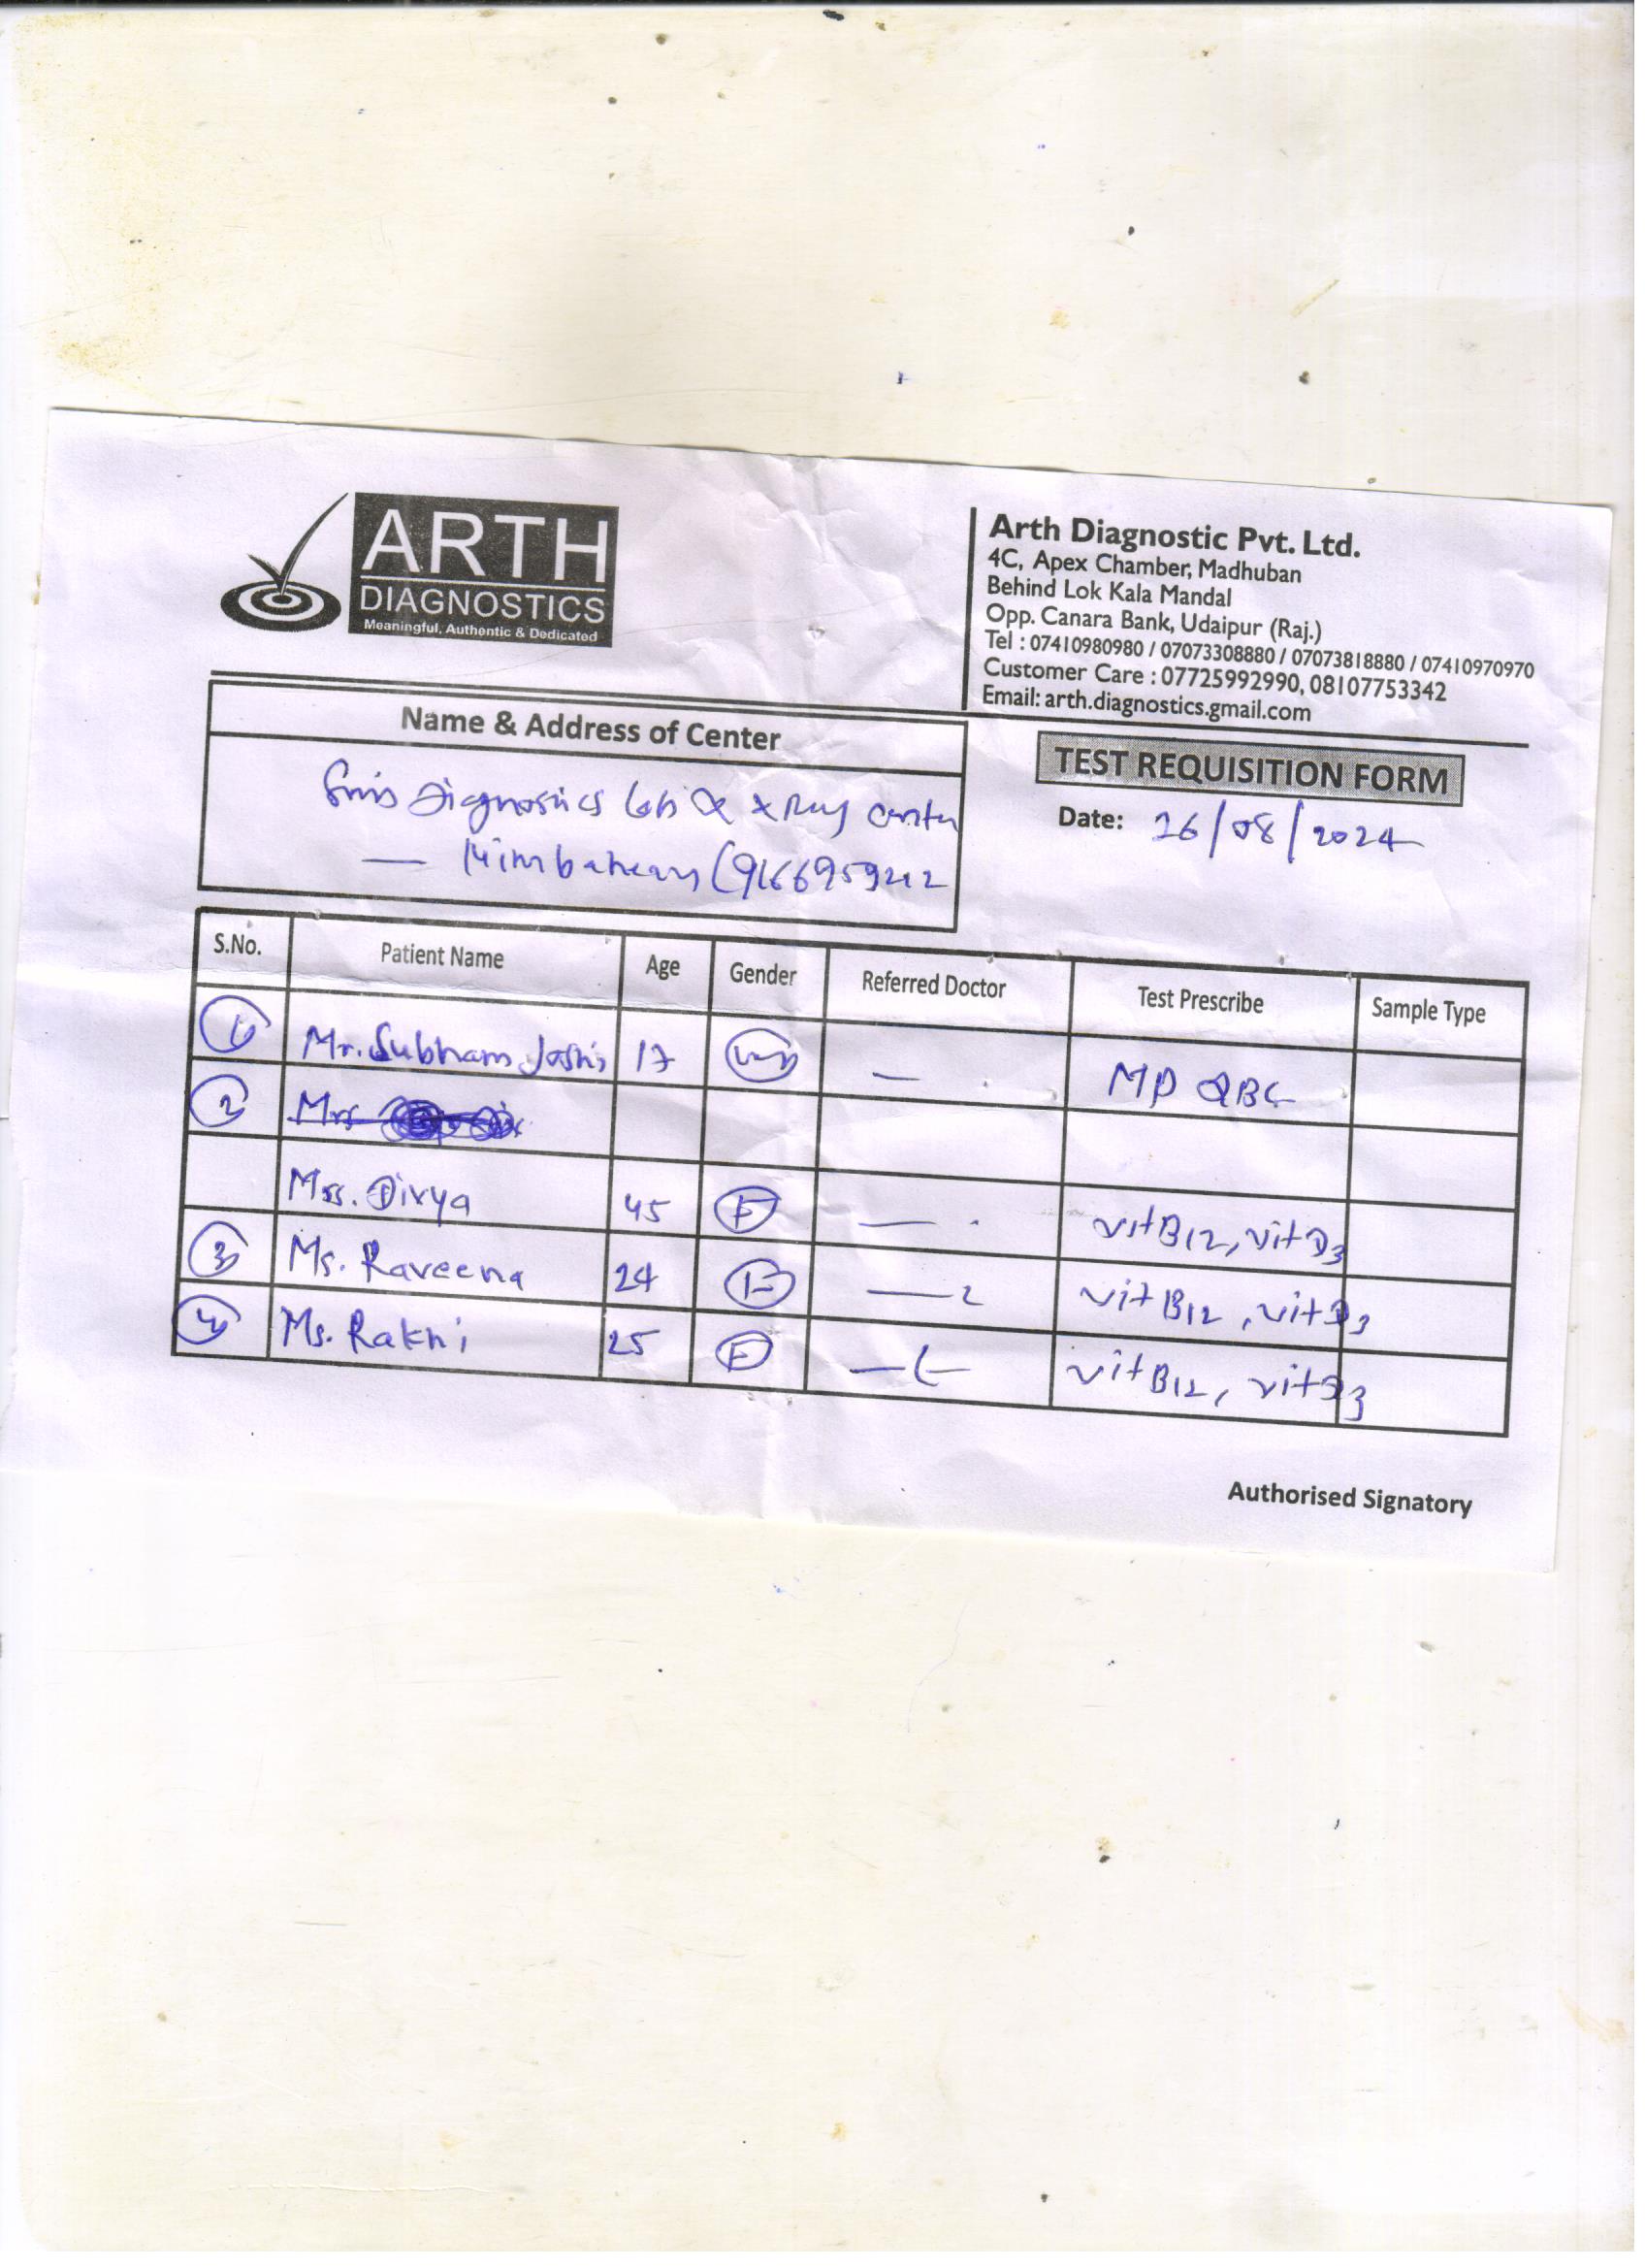 ARTH
DIAGNOSTICS
Meaningful, Authentic & Dedicated
Arth Diagnostic Pvt. Ltd.
4C, Apex Chamber, Madhuban
Behind Lok Kala Mandal
Opp. Canara Bank, Udaipur (Raj.)
Tel : 07410980980 / 07073308880 / 07073818880 / 07410970970
Customer Care : 07725992990, 08107753342
Email: arth.diagnostics.gmail.com
Name & Address of Center
Diagnostics & X Ray center
(9166959212
TEST REQUISITION FORM
Date: 26/08/2024
S.No. Patient Name Age Gender Referred Doctor Test Prescribe Sample Type
1 Mr. Subham Joshi 17 — MP QBC
2 Mrs
Mrs. Divya 45 F — vit B12, vit D3
3 Ms. Raveena 24 F — vit B12, vit D3
4 Ms. Rakhi 25 F — vit B12, vit D3
Authorised Signatory